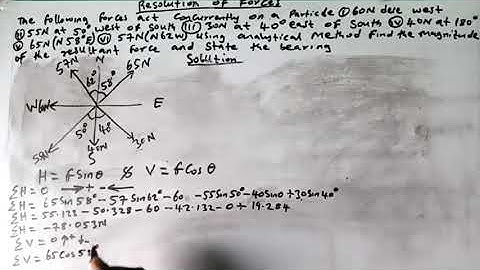 Resolution of Forces
The following forces act Concurrently on a Particle (i) 60N due west
(ii) 55N at 50° west of South (iii) 30N at 40° east of South (iv) 40N at 180°
(v) 65N (N58°E) (vi) 57N (N62W) using analytical Method find the Magnitude
of the resultant force and state the bearing
Solution
57N 65N
62° 58°
W60N E
50° 40°
55N 40N 30N
S
H = fSinθ & V = fCosθ
ΣH = 0 → + - ←
ΣH = 65Sin58° - 57Sin62° - 60 - 55Sin50° - 40Sin0 + 30Sin40°
ΣH = 55.123 - 50.328 - 60 - 42.132 - 0 + 19.284
ΣH = -78.053N
ΣV = 0 ↑+ ↓-
ΣV = 65Cos58